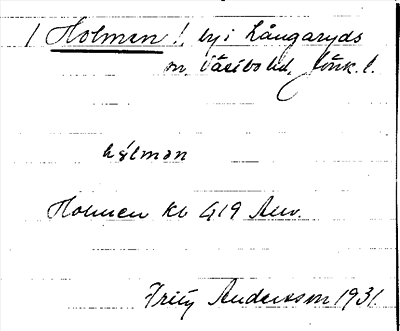 / Holmen /, by i Långaryds
sn. Västbo hd, Jönk. l.
hólmən
Holmen Kb 419 Anv.
Fritz Andersson 1931.